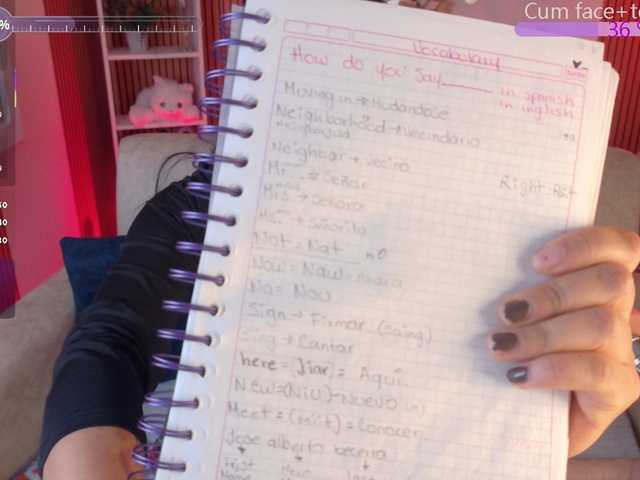 Cum face+t
36 %
Vocabulary
How do you say ______ in spanish
in inglish
Moving in → Mudandose
Neighborhood → Vecindario
Neighbar → Vecino
Right
Mr → Señor
Mrs → Señora
Ms → Señorita
Not = Nat no
Now = Naw
No = Now
Sign → Firmar (Saing)
Sing → Cantar
here = Jiar = Aquí
New = (Niu) = Nuevo
Meet = (miit) = Conocer
Jose alberto becerra
First
Name